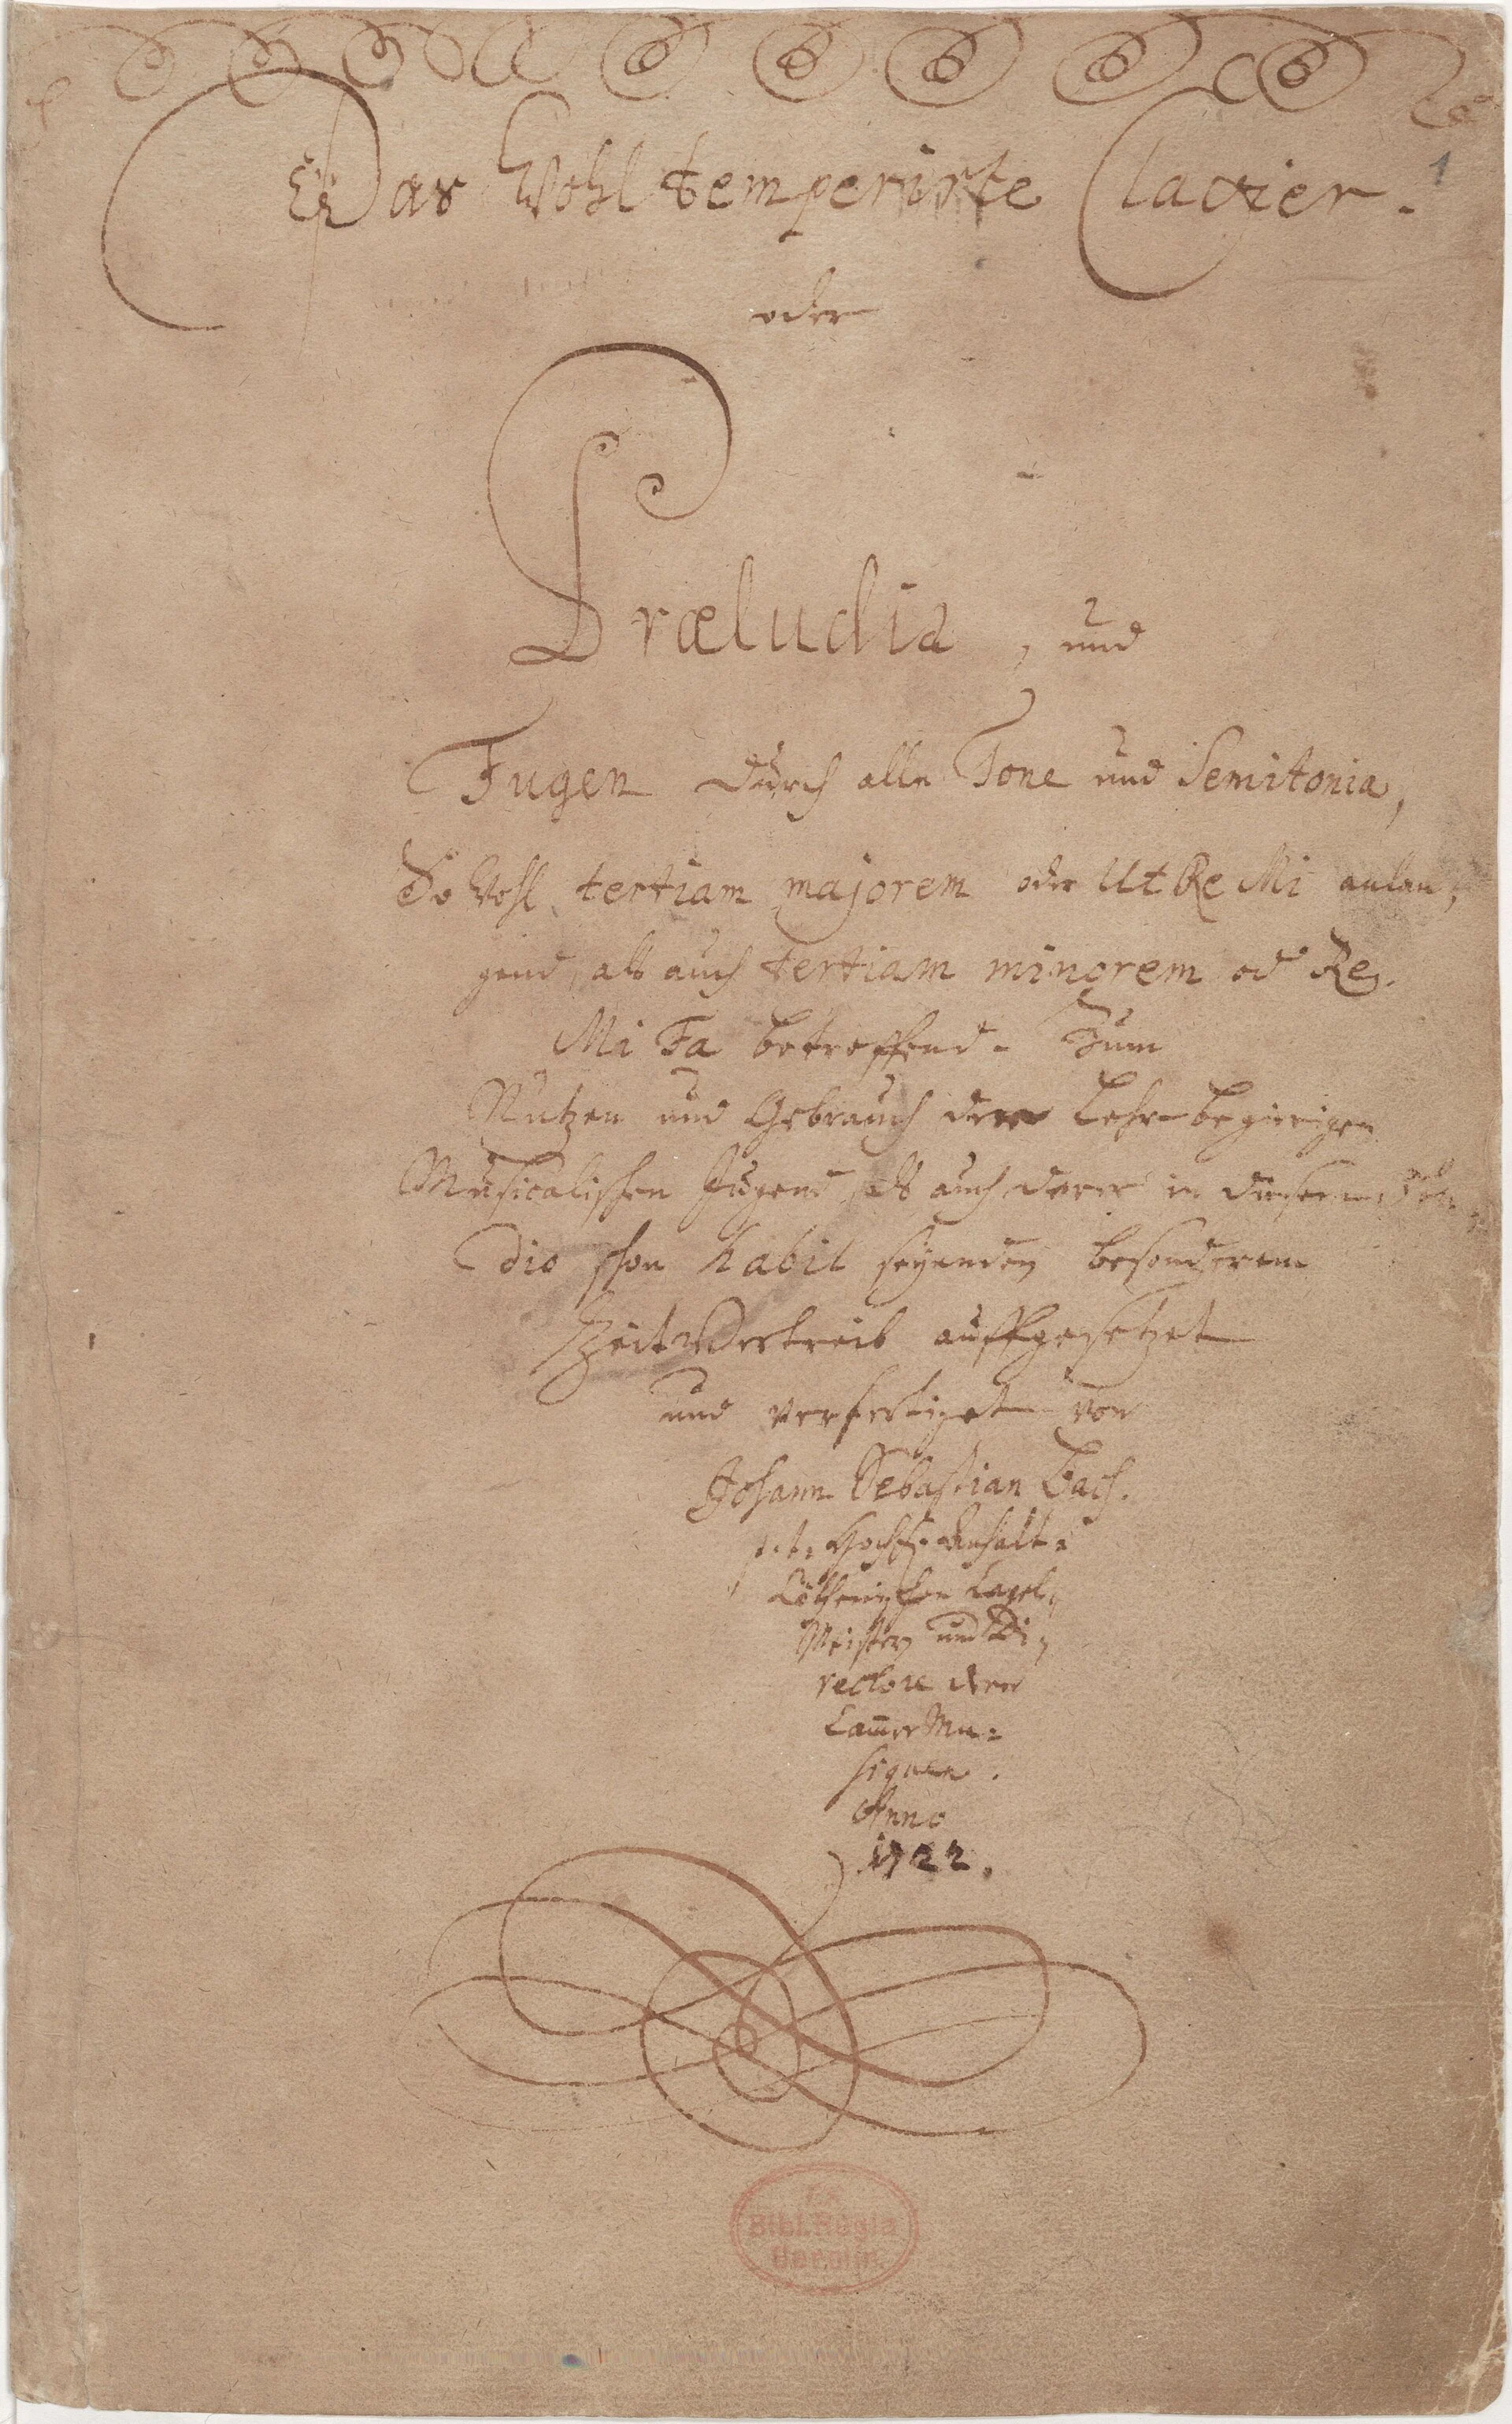 Das Wohltemperirte Clavier.
1
oder
Præludia, und
Fugen durch alle Tone und Semitonia,
So wohl tertiam majorem oder Ut Re Mi anlan-
gend, als auch tertiam minorem od Re
Mi Fa betreffend. Zum
Nutzen und Gebrauch der Lehr-begierigen
Musicalischen Jugend, als auch derer in diesem stu-
dio schon habil seyenden besonderem
Zeitvertreib auffgesetzet
und verfertiget von
Johann Sebastian Bach.
p. t. Hochf. Anhalt-
Cöthenischen Capel-
Meistern und Di-
rectore derer
Cammer Mu-
siquen.
Anno
1722.
Bibl. Regia
Berolin.